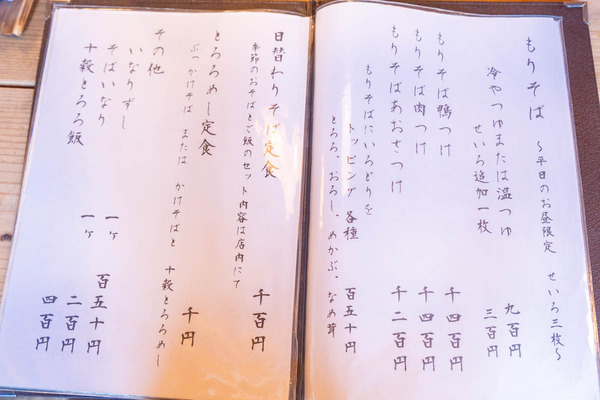 もりそば 〜平日のお昼限定 せいろ三枚〜
冷やつゆまたは温つゆ 九百円
せいろ追加一枚 三百円
もりそば鴨つけ 千四百円
もりそば肉つけ 千四百円
もりそばあおさつけ 千二百円
もりそばにいろどりを
トッピング各種 百五十円
とろろ、おろし、めかぶ、なめ茸
日替わりそば定食 千百円
季節のおそばとご飯のセット 内容は店内にて
とろろめし定食 千円
ぶっかけそば または かけそばと 十穀とろろめし
その他
いなりずし 一ヶ 百五十円
そばいなり 一ヶ 二百円
十穀とろろ飯 四百円